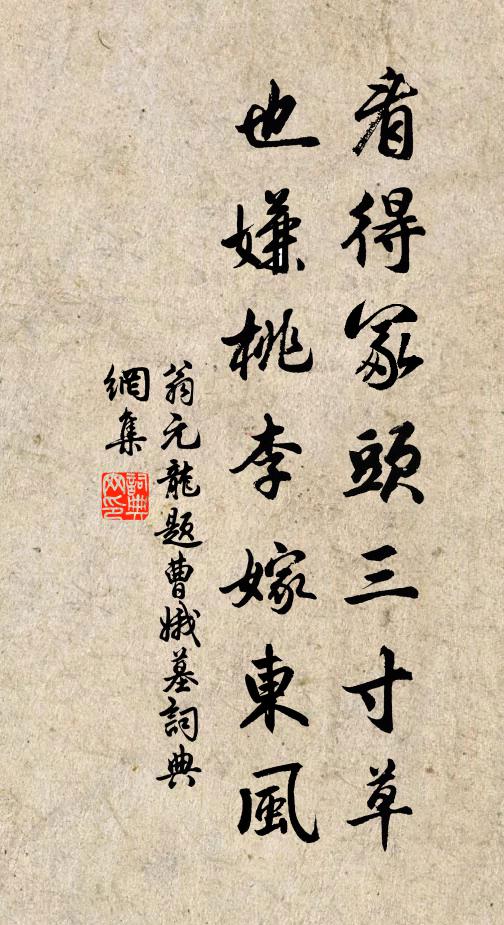 看得冢頭三寸草
也嫌桃李嫁東風
翁元龍題曹娥墓詞典
網集
詞典
網印